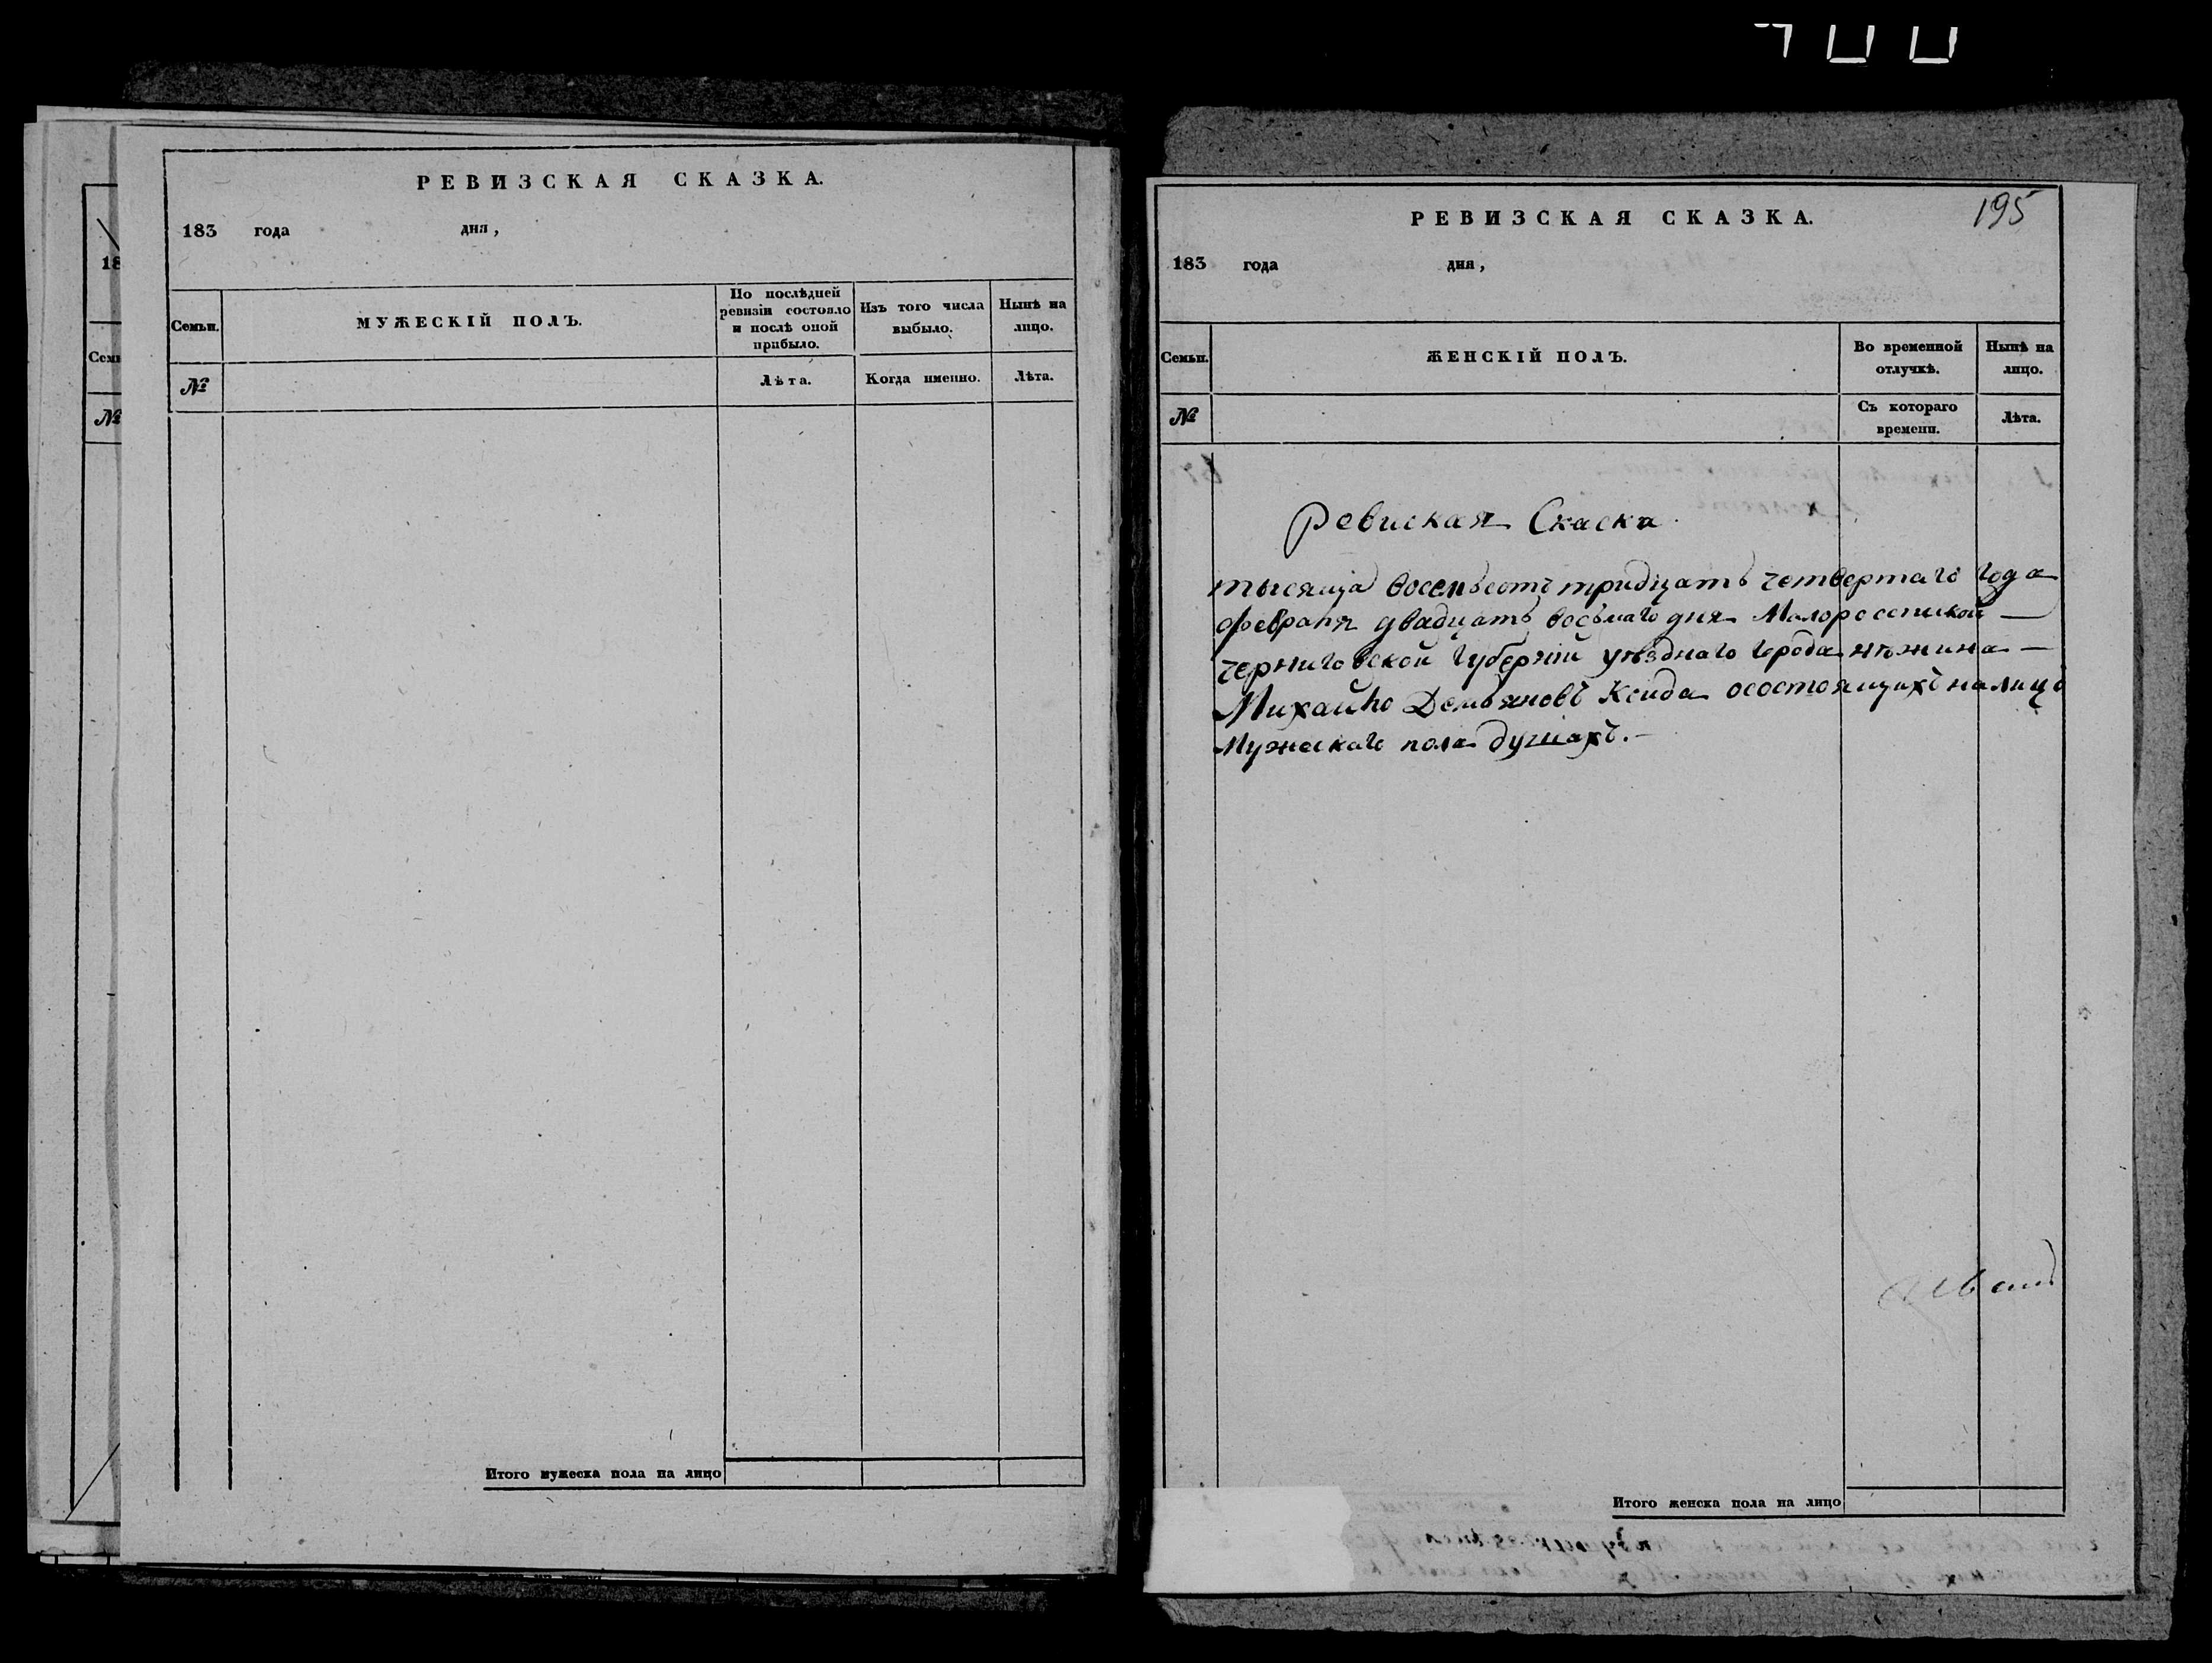 РЕВИЗСКАЯ СКАЗКА.
183 года дня,
Семьи.
МУЖЕСКІЙ ПОЛЪ.
По послѣдней ревизіи состояло и послѣ оной прибыло.
Изъ того числа выбыло.
Нынѣ на лицо.
№
Лѣта.
Когда именно.
Лѣта.
Итого мужеска пола на лицо
195
РЕВИЗСКАЯ СКАЗКА.
183 года дня,
Семьи.
ЖЕНСКІЙ ПОЛЪ.
Во временной отлучкѣ.
Нынѣ на лицо.
№
Съ котораго времени.
Лѣта.
Ревиская Скаска
тысяща восемьсотъ тридцать четвертаго года
февраля двадцать восьмаго дня Малоросеткой
черниговской губерніи уѣзднаго города нѣжина
Михайло Демьяновъ Ксида осостоящихъ налицо
Мужескаго пола душахъ.
Итого женска пола на лицо